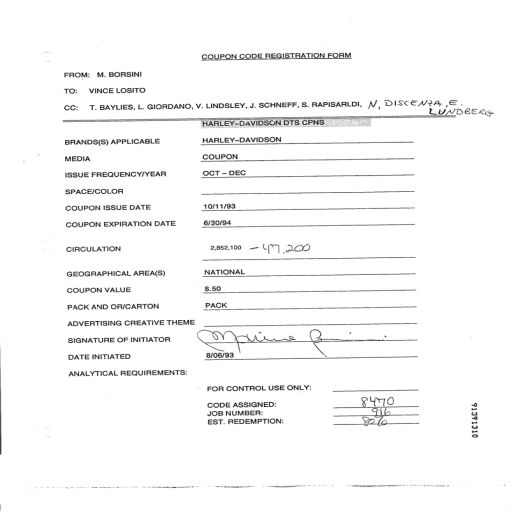 COUPON CODE REGISTRATION FORM
FROM: M. BORSINI
TO: VINCE LOSITO
CC: T. BAYLIES, L. GIORDANO, V. LINDSLEY, J. SCHNEFF, S. RAPISARLDI, N, DISCENZA, E.
LUNDBERG
HARLEY-DAVIDSON DTS CPNS
BRANDS(S) APPLICABLE HARLEY-DAVIDSON
MEDIA COUPON
ISSUE FREQUENCY/YEAR OCT - DEC
SPACE/COLOR
COUPON ISSUE DATE 10/11/93
COUPON EXPIRATION DATE 6/30/94
CIRCULATION 2,852,100 - 47,200
GEOGRAPHICAL AREA(S) NATIONAL
COUPON VALUE $.50
PACK AND OR/CARTON PACK
ADVERTISING CREATIVE THEME
SIGNATURE OF INITIATOR
DATE INITIATED 8/06/93
ANALYTICAL REQUIREMENTS:
FOR CONTROL USE ONLY:
CODE ASSIGNED: 8470
JOB NUMBER: 916
EST. REDEMPTION:
91391310